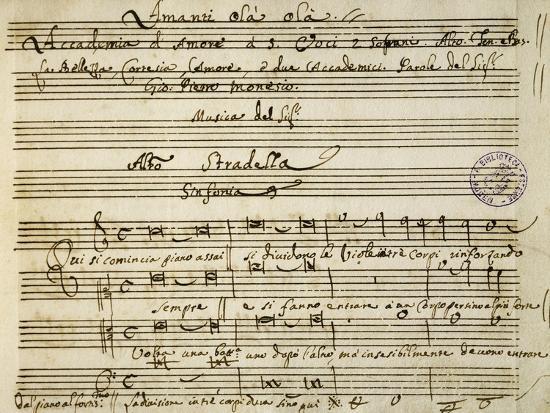 Amanti olà olà.
Accademia d'Amore à 5. Voci 2 Soprani. Alto. Ten. e Bas.
la Bellezza, Cortesia, Amore, e due Accademici. Parole del Sigr.
Gio. Pietro Monesio.
Musica del Sigr.
Stradella
Sinfonia
BIBLIOTECA ESTENSE
Qui si comincia piano assai si dividono le Viole in trè corpi rinforzando
sempre e si fanno entrare à un Corpo per tino al più forte
Volta una battta. uno dopo l'altro ma insensibilmente devono entrare
dal piano al fortmo. la divisione in trè corpi dura sino qui